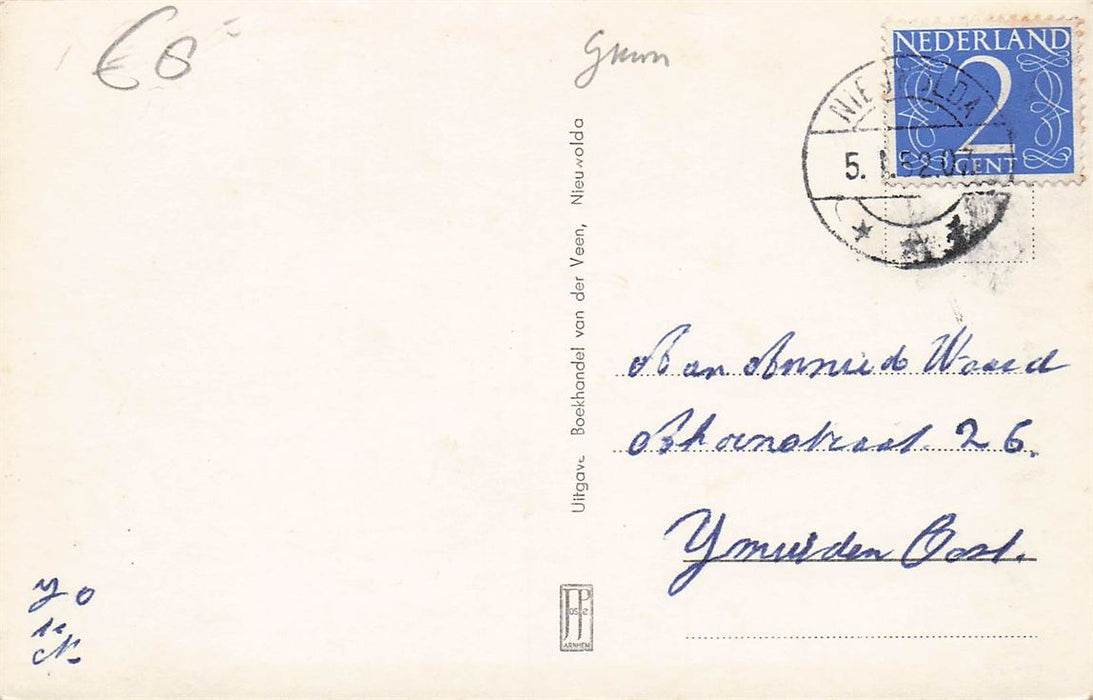 € 6
NEDERLAND
2
CENT
NIEUWOLDA
5. 1.52.07
Uitgave Boekhandel van der Veen, Nieuwolda
Aan Annie d Waard
straat 26.
Ymuiden Oost.
JP
ARNHEM